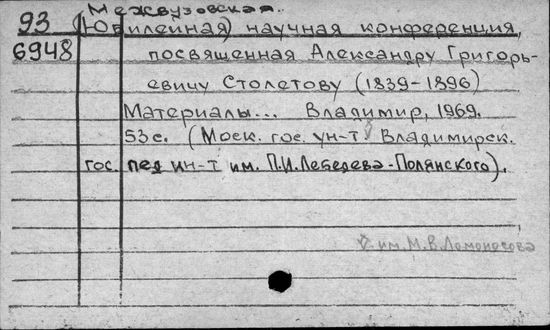 Межвузовская
93 (Юбилейная) научная конференция,
6948 посвященная Александру Григорь-
евичу Столетову (1839-1896)
Материалы... Владимир, 1969.
53 с. (Моск. гос. ун-т. Владимирск.
гос. пед ин-т им. П.И.Лебедева-Полянского).
им. М.В.Ломоносова